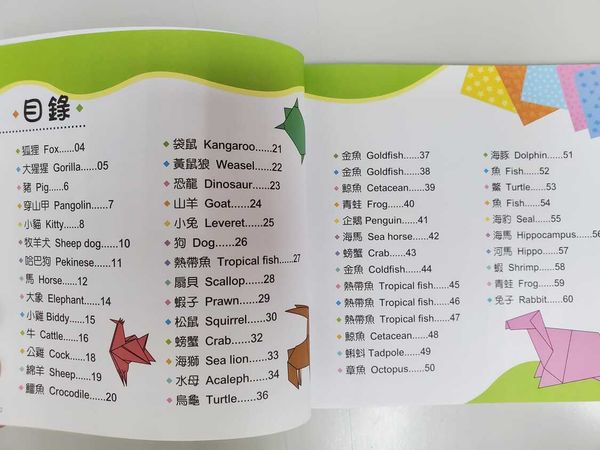 目錄
狐狸 Fox......04
大猩猩 Gorilla......05
豬 Pig......6
穿山甲 Pangolin......7
小貓 Kitty......8
牧羊犬 Sheep dog......10
哈巴狗 Pekinese......11
馬 Horse......12
大象 Elephant......14
小雞 Biddy......15
牛 Cattle......16
公雞 Cock......18
綿羊 Sheep......19
鱷魚 Crocodile......20
袋鼠 Kangaroo......21
黃鼠狼 Weasel......22
恐龍 Dinosaur......23
山羊 Goat......24
小兔 Leveret......25
狗 Dog......26
熱帶魚 Tropical fish......27
扇貝 Scallop......28
蝦子 Prawn......29
松鼠 Squirrel......30
螃蟹 Crab......32
海獅 Sea lion......33
水母 Acaleph......34
烏龜 Turtle......36
金魚 Goldfish......37
金魚 Goldfish......38
鯨魚 Cetacean......39
青蛙 Frog......40
企鵝 Penguin......41
海馬 Sea horse......42
螃蟹 Crab......43
金魚 Coldfish......44
熱帶魚 Tropical fish......45
熱帶魚 Tropical fish......46
熱帶魚 Tropical fish......47
鯨魚 Cetacean......48
蝌蚪 Tadpole......49
章魚 Octopus......50
海豚 Dolphin......51
魚 Fish......52
鱉 Turtle......53
魚 Fish......54
海豹 Seal......55
海馬 Hippocampus......56
河馬 Hippo......57
蝦 Shrimp......58
青蛙 Frog......59
兔子 Rabbit......60